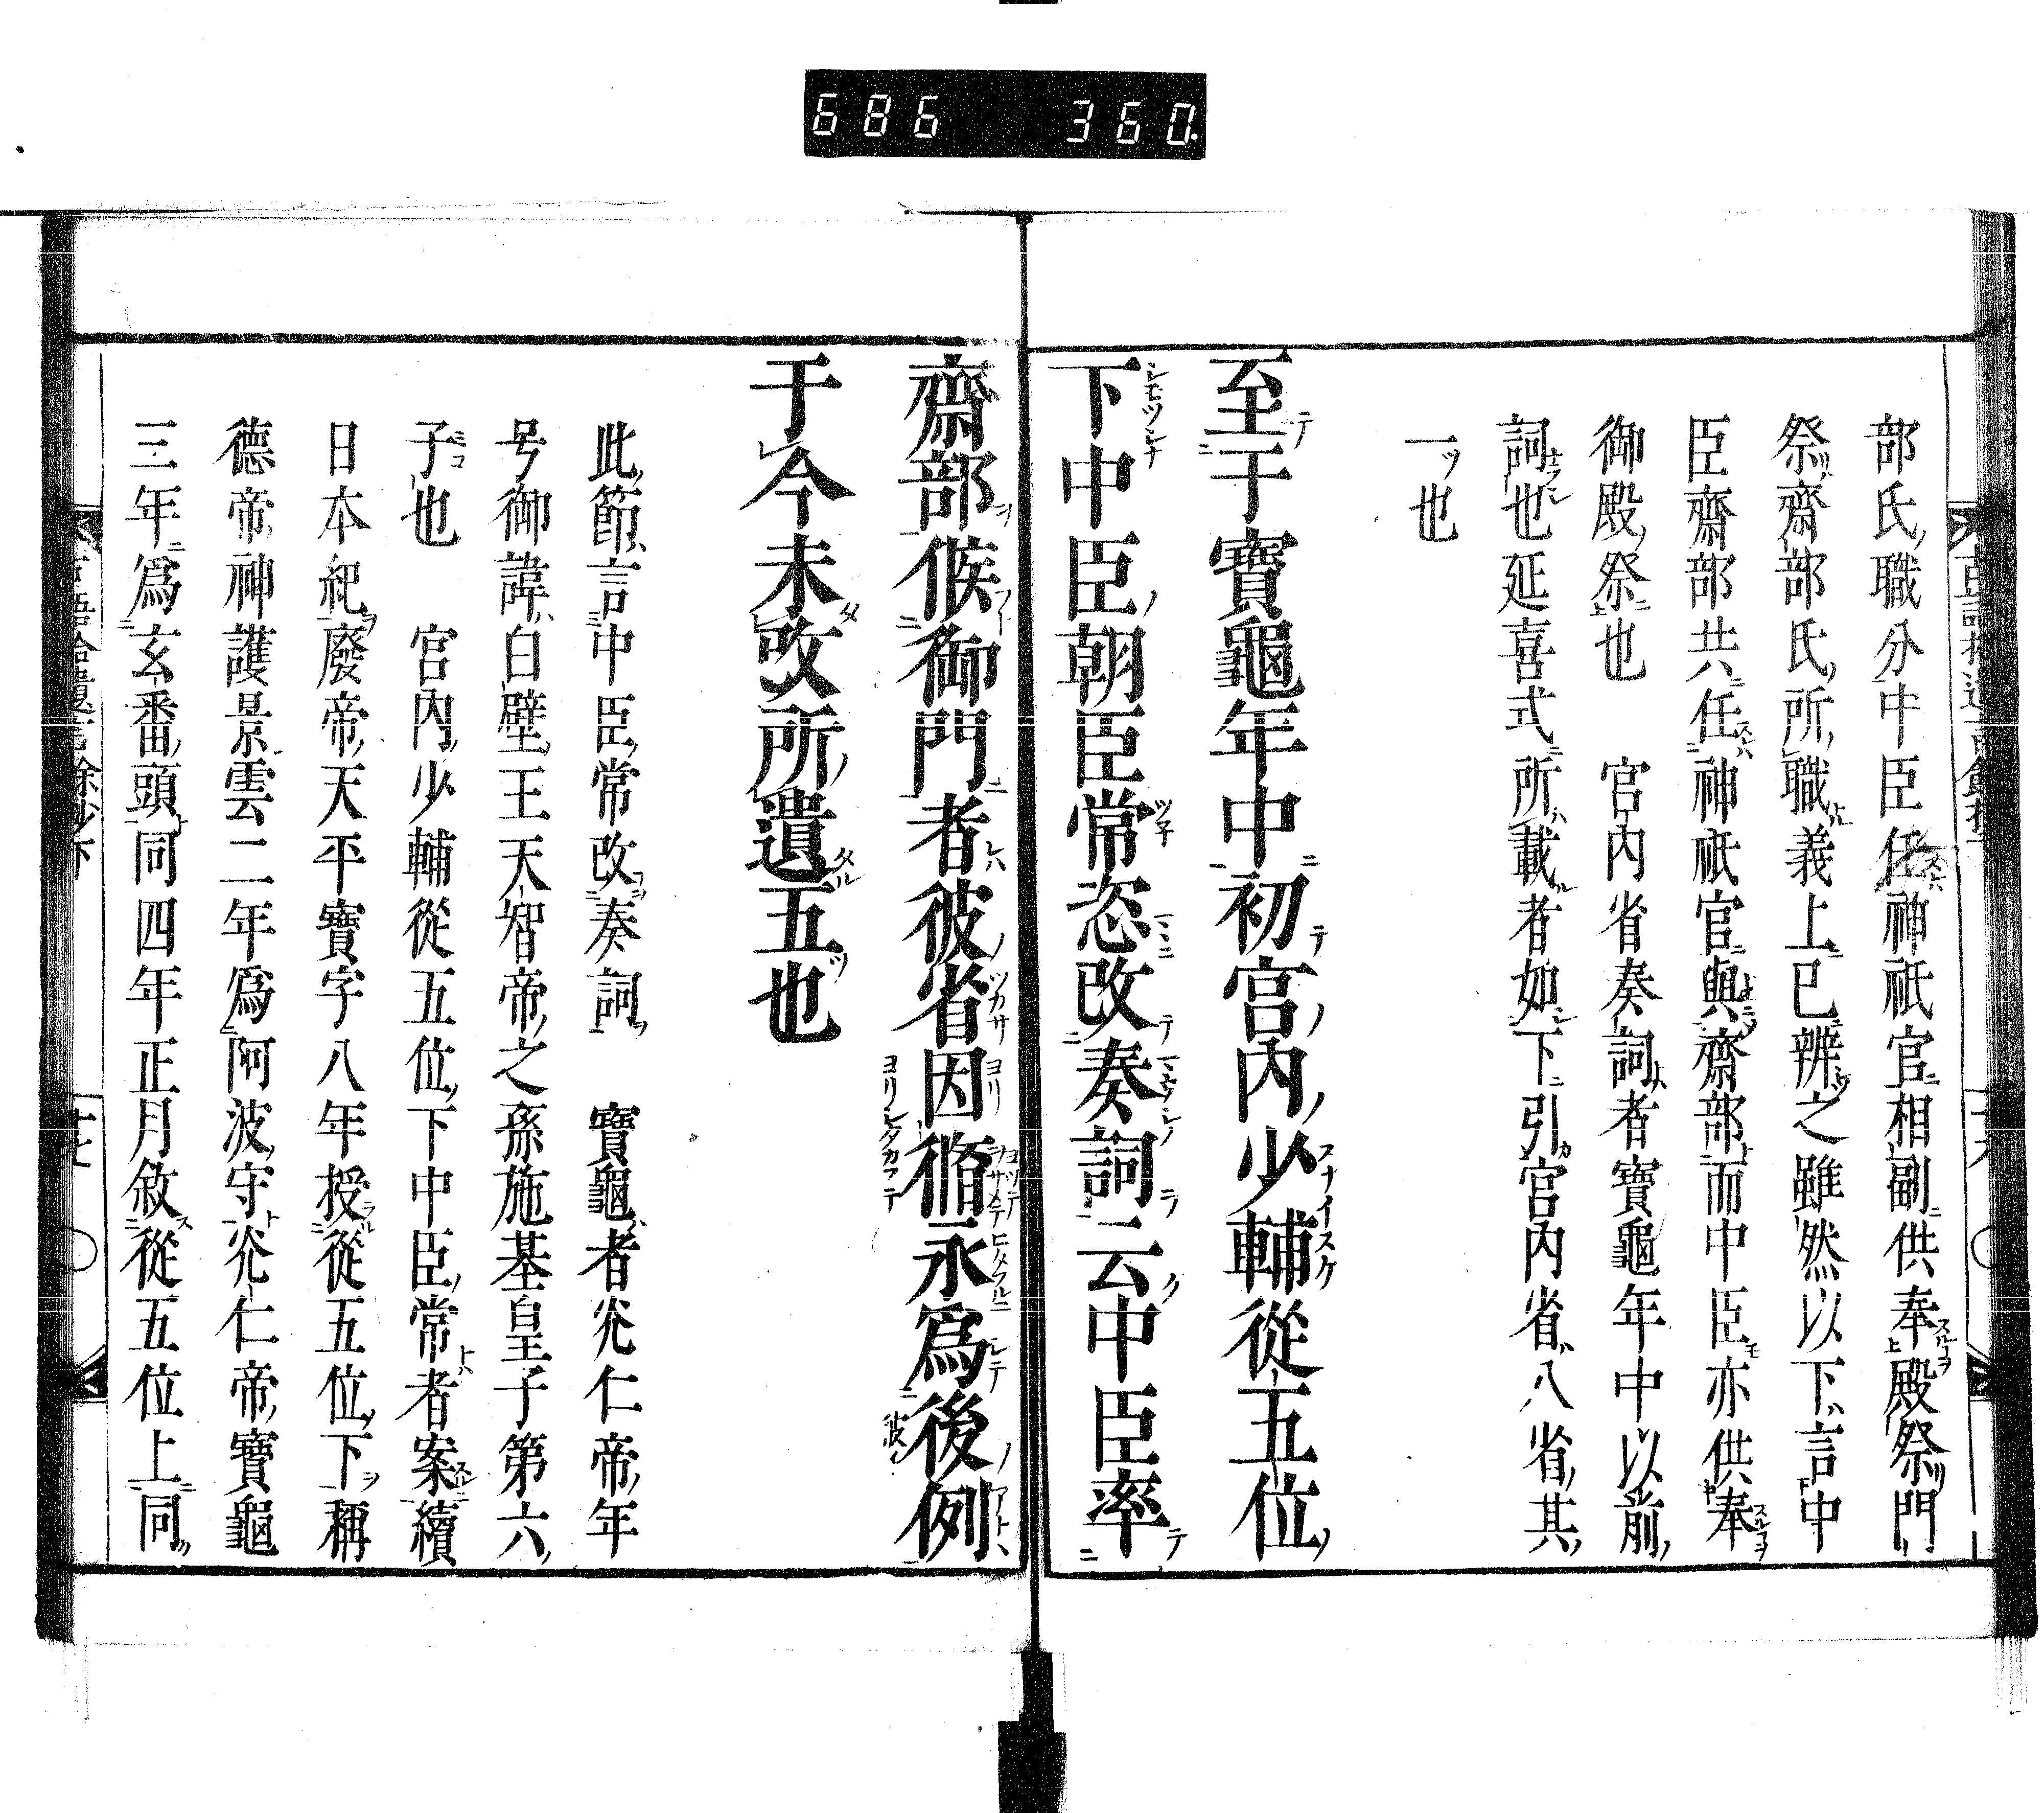 686 360.
部氏職分中臣任神祇官相副供奉殿祭門
祭齋部氏所職義上已辨之雖然以下言中
臣齋部共任神祇官與齋部而中臣亦供奉
御殿祭也 官內省奏詞者寶龜年中以前
詞也延喜式所載者如下引宮內省八省其
一ツ也
至于寶龜年中初宮內少輔從五位
下中臣朝臣常恣改奏詞云中臣率
齋部候御門者彼省因脩永爲後例
于今未改所遺五也
此節言中臣常改奏詞 寶龜者光仁帝年
号御諱白壁王天智帝之孫施基皇子第六
子也 宮內少輔從五位下中臣常者案續
日本紀廢帝天平寶字八年授從五位下稱
德帝神護景雲二年爲阿波守光仁帝寶龜
三年爲玄番頭同四年正月敘從五位上同